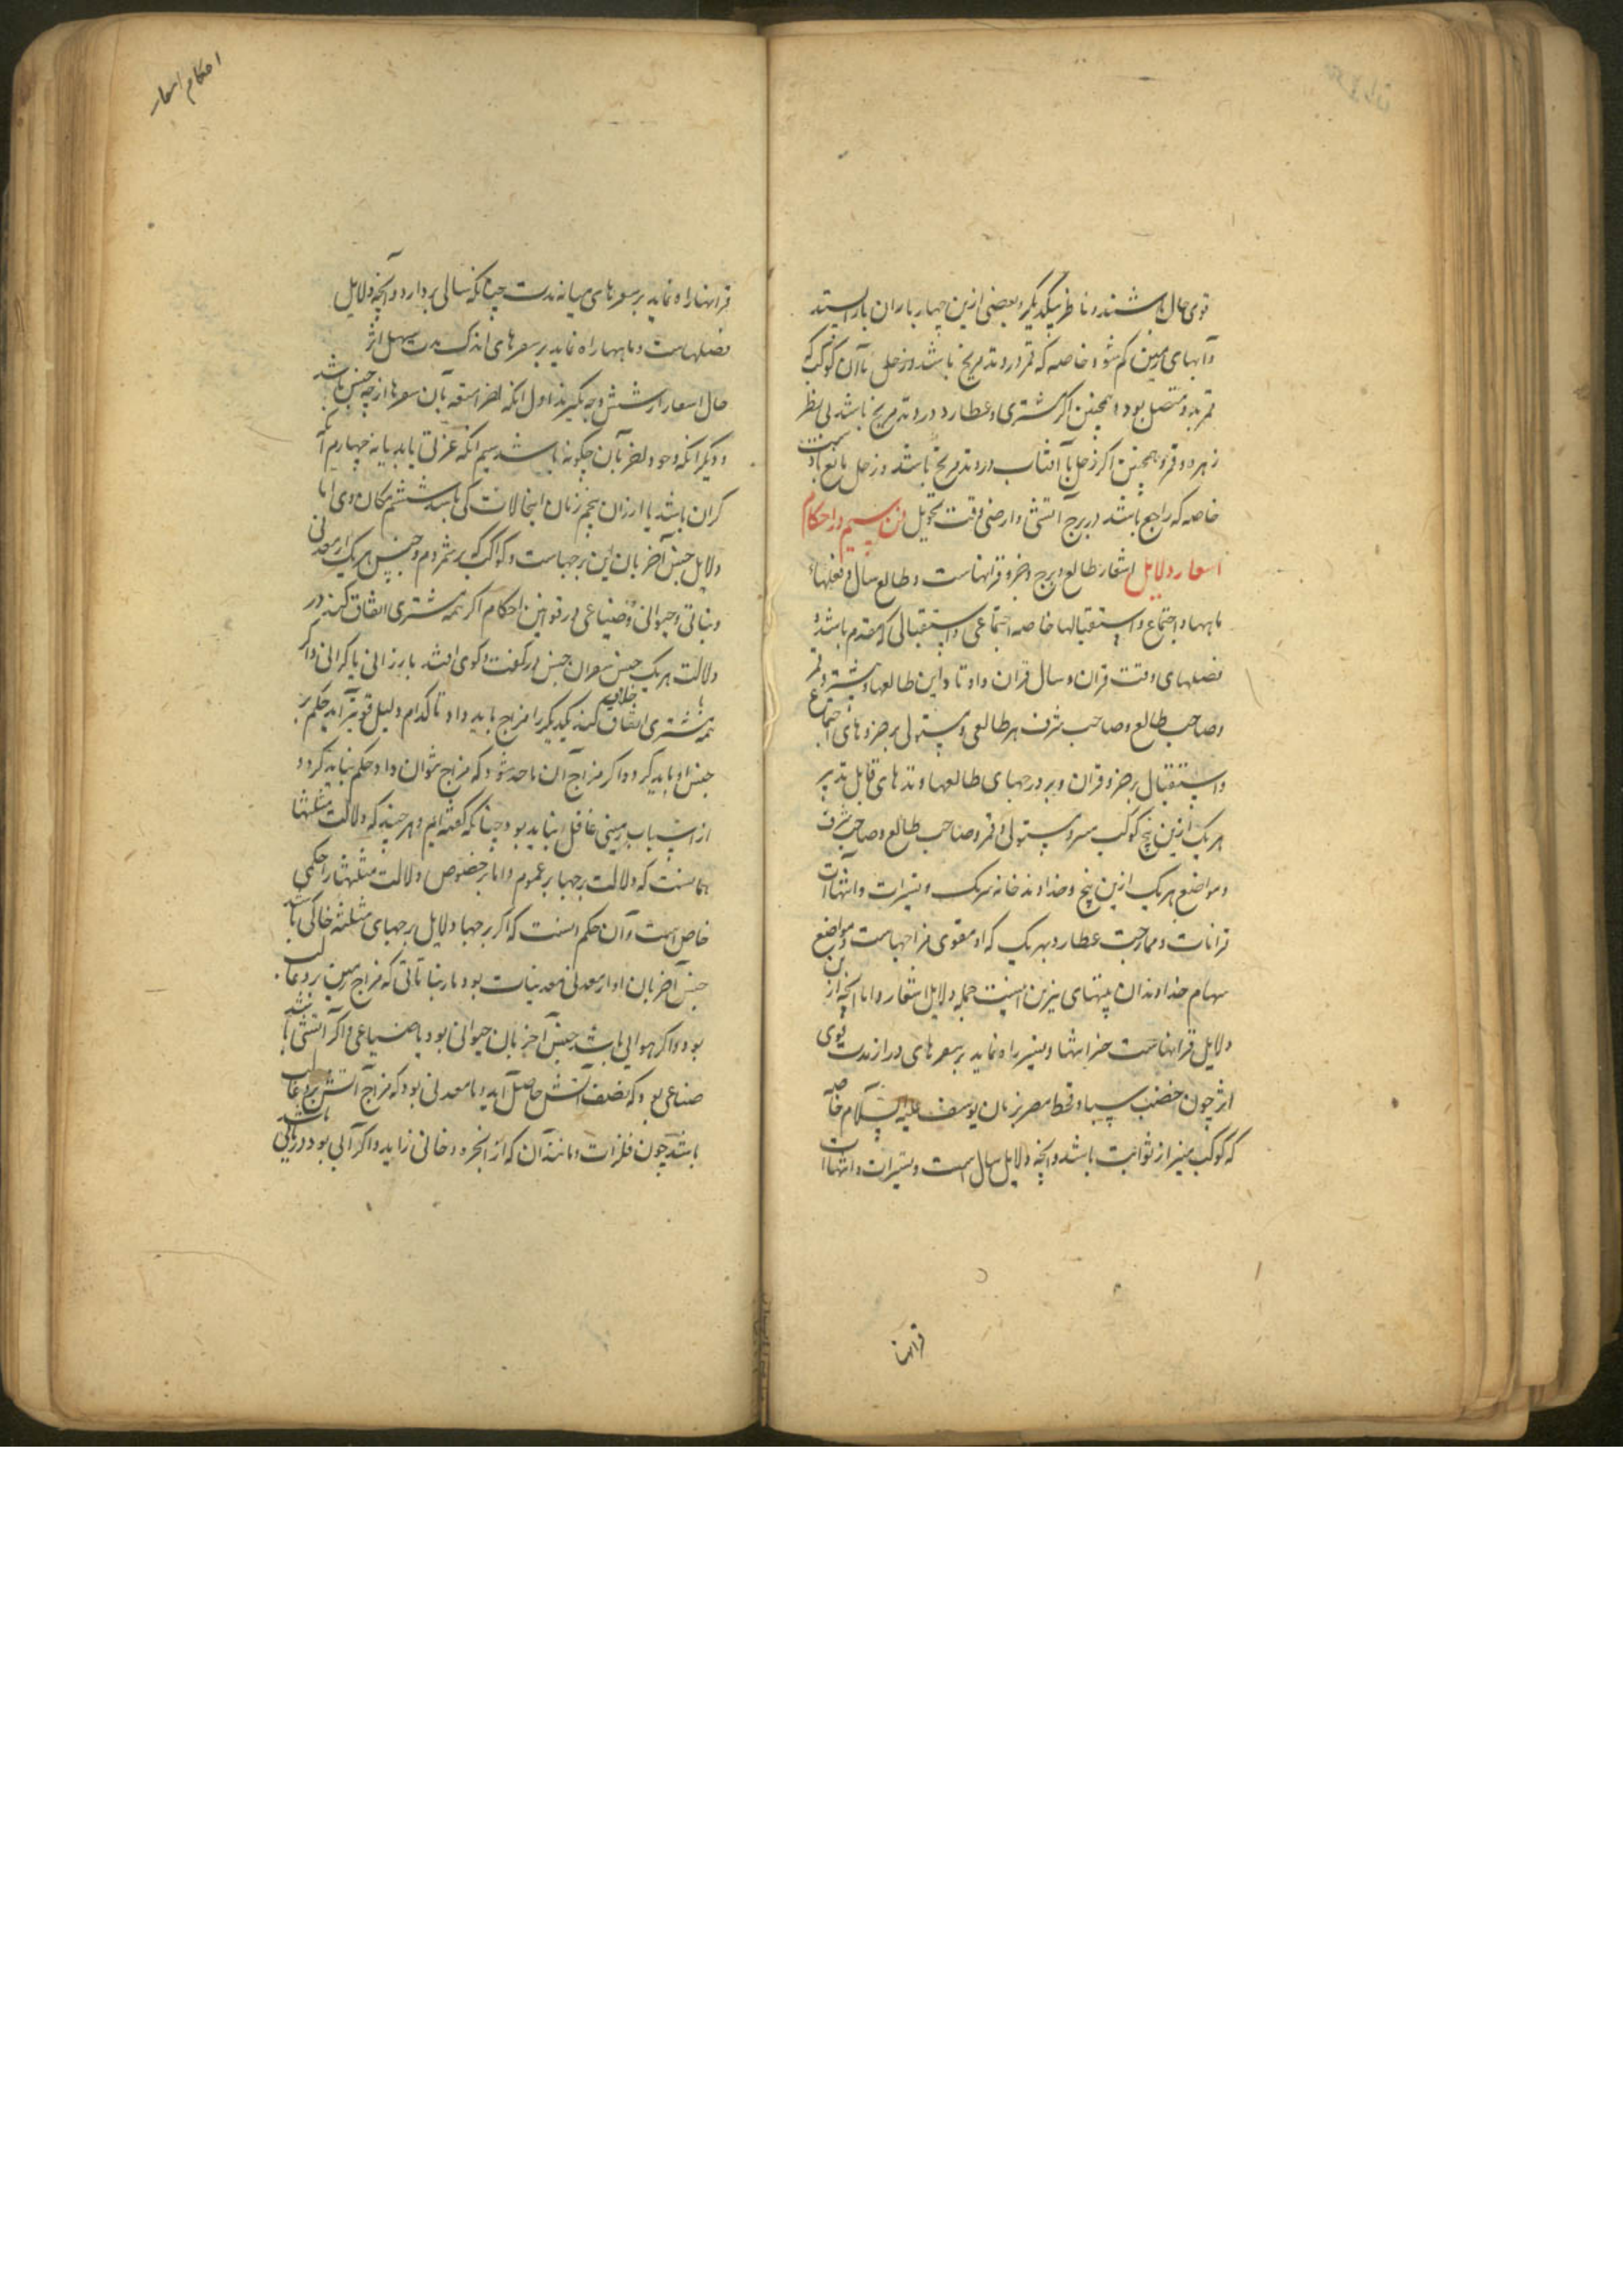 قوی حال باشند و ناظر بیکدیگر و بعضی ازین چهار باران باز ایستد
و آبهای زمین کم شود خاصه که قمر در وتد مریخ باشد و زحل با آن کوکب که
قمر بدو متصل بود و همچنین اگر مشتری و عطارد در وتد مریخ باشد بی نظر
زهره و قمر و همچنین اگر زحل با آفتاب در وتد مریخ باشد و زحل مانع بارانست
خاصه که راجع باشد در برج آتشی و ارضی وقت تحویل فن سیم در احکام
اسعار دلایل اسعار طالع و برج و جزو قرانهاست و طالع سال و فصلها و
ماهها و اجتماع و استقبالها خاصه اجتماعی و استقبالی که مقدم باشد و
فصلهای وقت قران و سال قران و اوتاد این طالعها و مشتری و قمر
و صاحب طالع و صاحب شرف هر طالعی و مستولی بر جزوهای اجتماع
و استقبال بر جزو قران و بر درجهای طالعها و وتدهای قابل تدبیر
هر یک ازین پنج کوکب مستولی و قمر و صاحب طالع و صاحب شرف
و مواضع هر یک ازین پنج و خداوند خانه هر یک و تسیرات و انتهاآت
قرانات و ممازجت عطارد بهر یک که او مقوی مزاجهاست و مواضع
سهام خداوندان بیتهای نیرین اینست جمله دلایل اسعار و اما آنچه ازین
دلایل قرانهاست جزانتها و تسییر راه نماید بر سعرهای دراز مدت قوی
اثر چون خصب سبا و قحط مصر بزمان یوسف علیه السلام خاصه
که کوکب نیز از ثوابت باشد و آنچه دلایل سال است و تسیرات و انتهاآت
قرانها
احکام اسعار
قرانها راه نماید بر سعرهای میانه مدت چنانکه سالی بردارد و آنچه دلایل
فصلهاست و ماهها راه نماید بر سعرهای اندک مدت سهل اثر
حال اسعار از شش وجه نگیرند اول آنکه آن سعرها از چه جنس باشد
و دیگر آنکه وجود آن چگونه باشد سیم آنکه عزتی یابد یا نه چهارم آنکه
گران باشد یا ارزان پنجم زمان این حالات کی باشد ششم مکان وی اما
دلایل جنس آخریان این برجهاست و کواکب که بر شمردم و جنس هر یک از معدنی
و نباتی و حیوانی و صناعی در قوانین احکام اگر همه مشتری اتفاق کنند در
دلالت هر یک جنس سعر آن جنس در گفت و گوی افتد بارزانی یا گرانی و اگر
با همه مشتری اتفاق خلافیم کنند یکدیگر را مزاج باید داد تا کدام دلیل قویتر آید حکم بر
جنس او باید کرد و اگر مزاج آن باحد شود که مزاج نتوان داد حکم نباید کرد و
از اسباب زمینی غافل نباید بود چنانکه گفته‌ایم و هر چند که دلالت مثلثها
همانست که دلالت برجها بر عموم و اما بر خصوص دلالت مثلثها را حکمی
خاص است و آن حکم اینست که اگر برجها دلایل برجهای مثلثه خاکی باشد
جنس آخریان او از معدنی معدنیات بود یا نباتاتی که مزاج زمین برو غالب
بود و اگر هوایی باشد جنس آخریان حیوانی بود یا صناعی و اگر آتشی باشد
صناعی بود که بصنعت آتش حاصل آید و یا معدنی بود که مزاج آتش برو غالب
باشد چون فلزات و مانند آن که از ابخره دخانی زاید و اگر آبی بود دریایی باشد